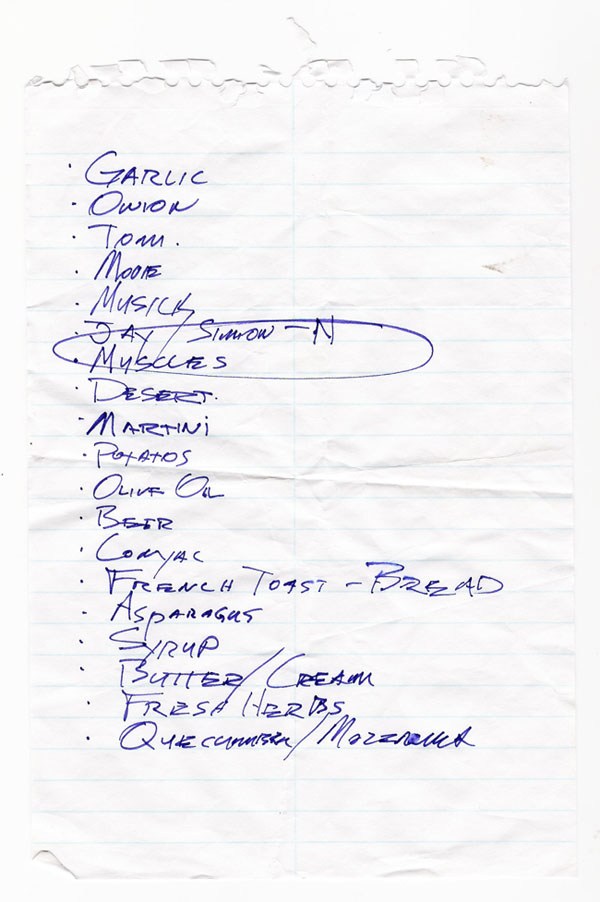 · GARLIC
· ONION
· TOM.
· MOVIE
· MUSICK
· JAY / SIMON - N
· MUSCLES
· DESERT.
· MARTINI
· POTATOS
· OLIVE OIL
· BEER
· CONYAC
· FRENCH TOAST - BREAD
· ASPARAGUS
· SYRUP
· BUTTER / CREAM
· FRESH HERBS
· QUECUMBER / MOZERELLA